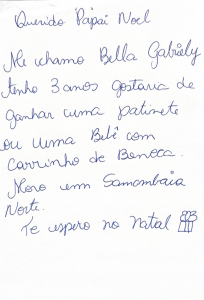 Querido Papai Noel
Me chamo Bella Gabriely
tenho 3 anos gostaria de
ganhar uma patinete
ou uma Bebê com
carrinho de Boneca.
Moro em Samambaia
Norte.
Te espero no natal